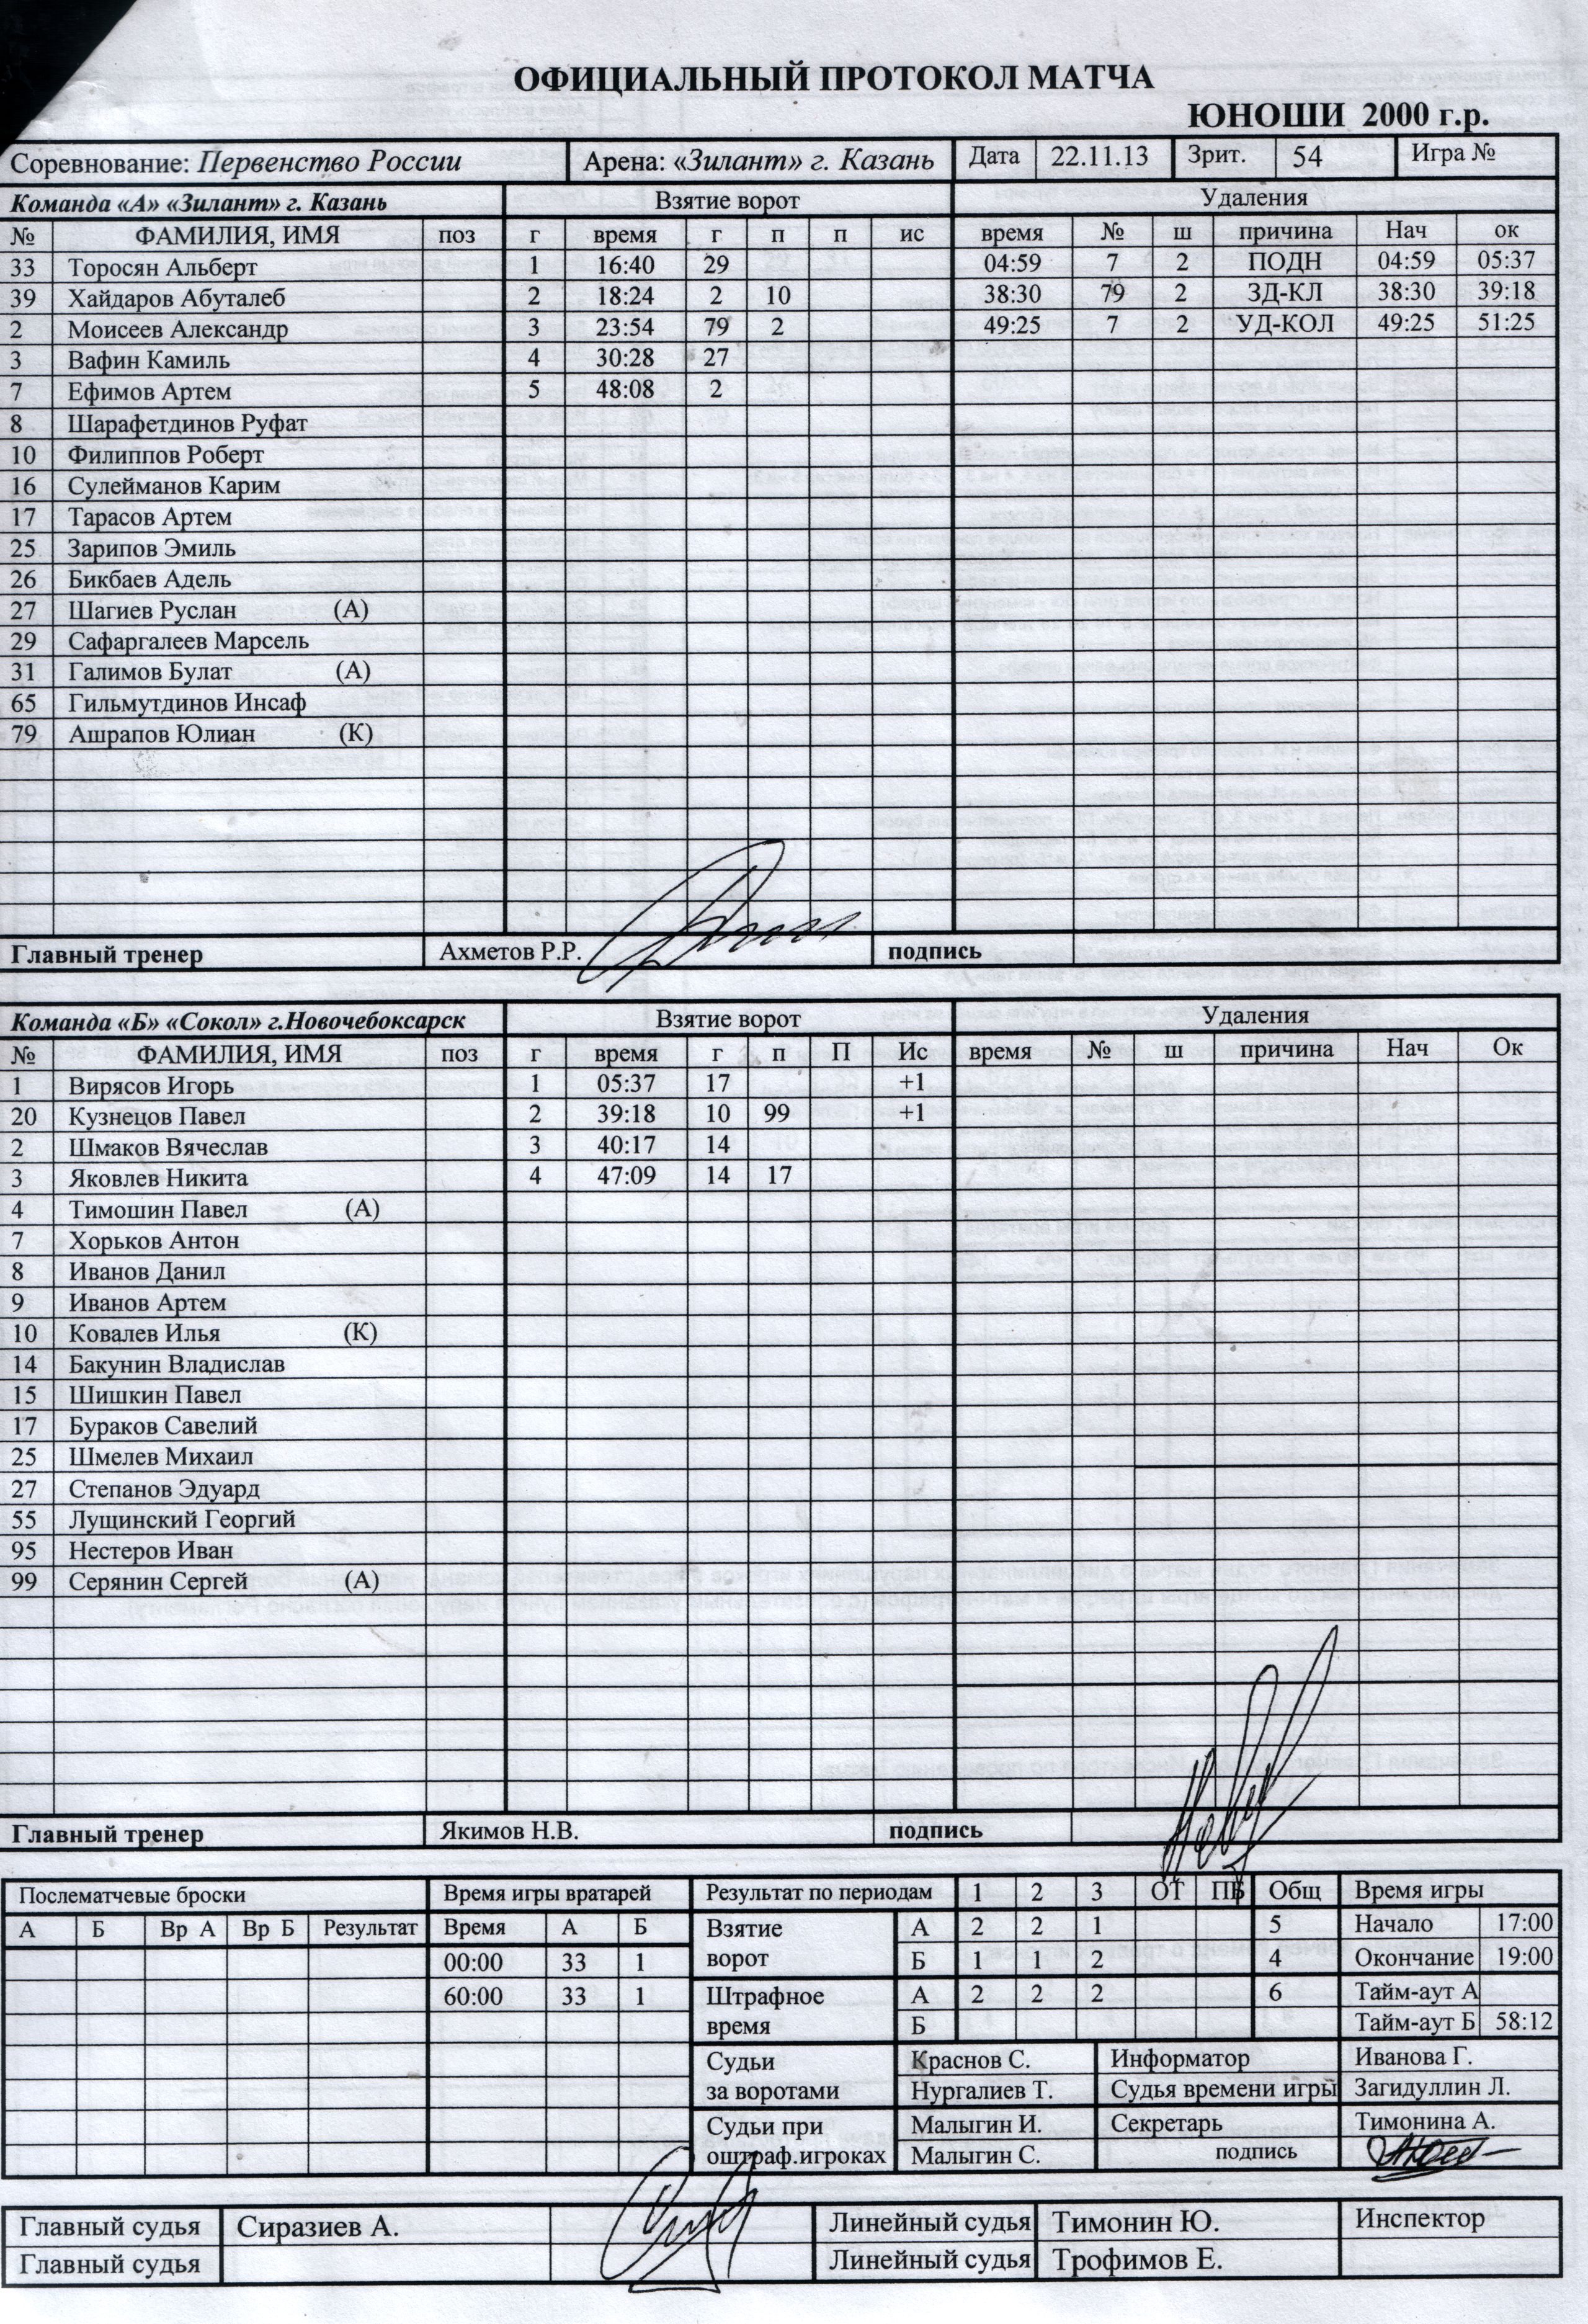 ОФИЦИАЛЬНЫЙ ПРОТОКОЛ МАТЧА
ЮНОШИ 2000 г.р.
Соревнование: Первенство России Арена: «Зилант» г. Казань Дата 22.11.13 Зрит. 54 Игра №
Команда «А» «Зилант» г. Казань Взятие ворот Удаления
№ ФАМИЛИЯ, ИМЯ поз г время г п п ис время № ш причина Нач ок
33 Торосян Альберт 1 16:40 29 04:59 7 2 ПОДН 04:59 05:37
39 Хайдаров Абуталеб 2 18:24 2 10 38:30 79 2 ЗД-КЛ 38:30 39:18
2 Моисеев Александр 3 23:54 79 2 49:25 7 2 УД-КОЛ 49:25 51:25
3 Вафин Камиль 4 30:28 27
7 Ефимов Артем 5 48:08 2
8 Шарафетдинов Руфат
10 Филиппов Роберт
16 Сулейманов Карим
17 Тарасов Артем
25 Зарипов Эмиль
26 Бикбаев Адель
27 Шагиев Руслан (А)
29 Сафаргалеев Марсель
31 Галимов Булат (А)
65 Гильмутдинов Инсаф
79 Ашрапов Юлиан (К)
Главный тренер Ахметов Р.Р. подпись
Команда «Б» «Сокол» г.Новочебоксарск Взятие ворот Удаления
№ ФАМИЛИЯ, ИМЯ поз г время г п П Ис время № ш причина Нач Ок
1 Вирясов Игорь 1 05:37 17 +1
20 Кузнецов Павел 2 39:18 10 99 +1
2 Шмаков Вячеслав 3 40:17 14
3 Яковлев Никита 4 47:09 14 17
4 Тимошин Павел (А)
7 Хорьков Антон
8 Иванов Данил
9 Иванов Артем
10 Ковалев Илья (К)
14 Бакунин Владислав
15 Шишкин Павел
17 Бураков Савелий
25 Шмелев Михаил
27 Степанов Эдуард
55 Лущинский Георгий
95 Нестеров Иван
99 Серянин Сергей (А)
Главный тренер Якимов Н.В. подпись
Послематчевые броски Время игры вратарей Результат по периодам 1 2 3 ОТ ПБ Общ Время игры
А Б Вр А Вр Б Результат Время А Б Взятие ворот А 2 2 1 5 Начало 17:00
00:00 33 1 Б 1 1 2 4 Окончание 19:00
60:00 33 1 Штрафное время А 2 2 2 6 Тайм-аут А
Б Тайм-аут Б 58:12
Судьи за воротами Краснов С. Информатор Иванова Г.
Нургалиев Т. Судья времени игры Загидуллин Л.
Судьи при оштраф.игроках Малыгин И. Секретарь Тимонина А.
Малыгин С. подпись
Главный судья Сиразиев А. Линейный судья Тимонин Ю. Инспектор
Главный судья Линейный судья Трофимов Е.